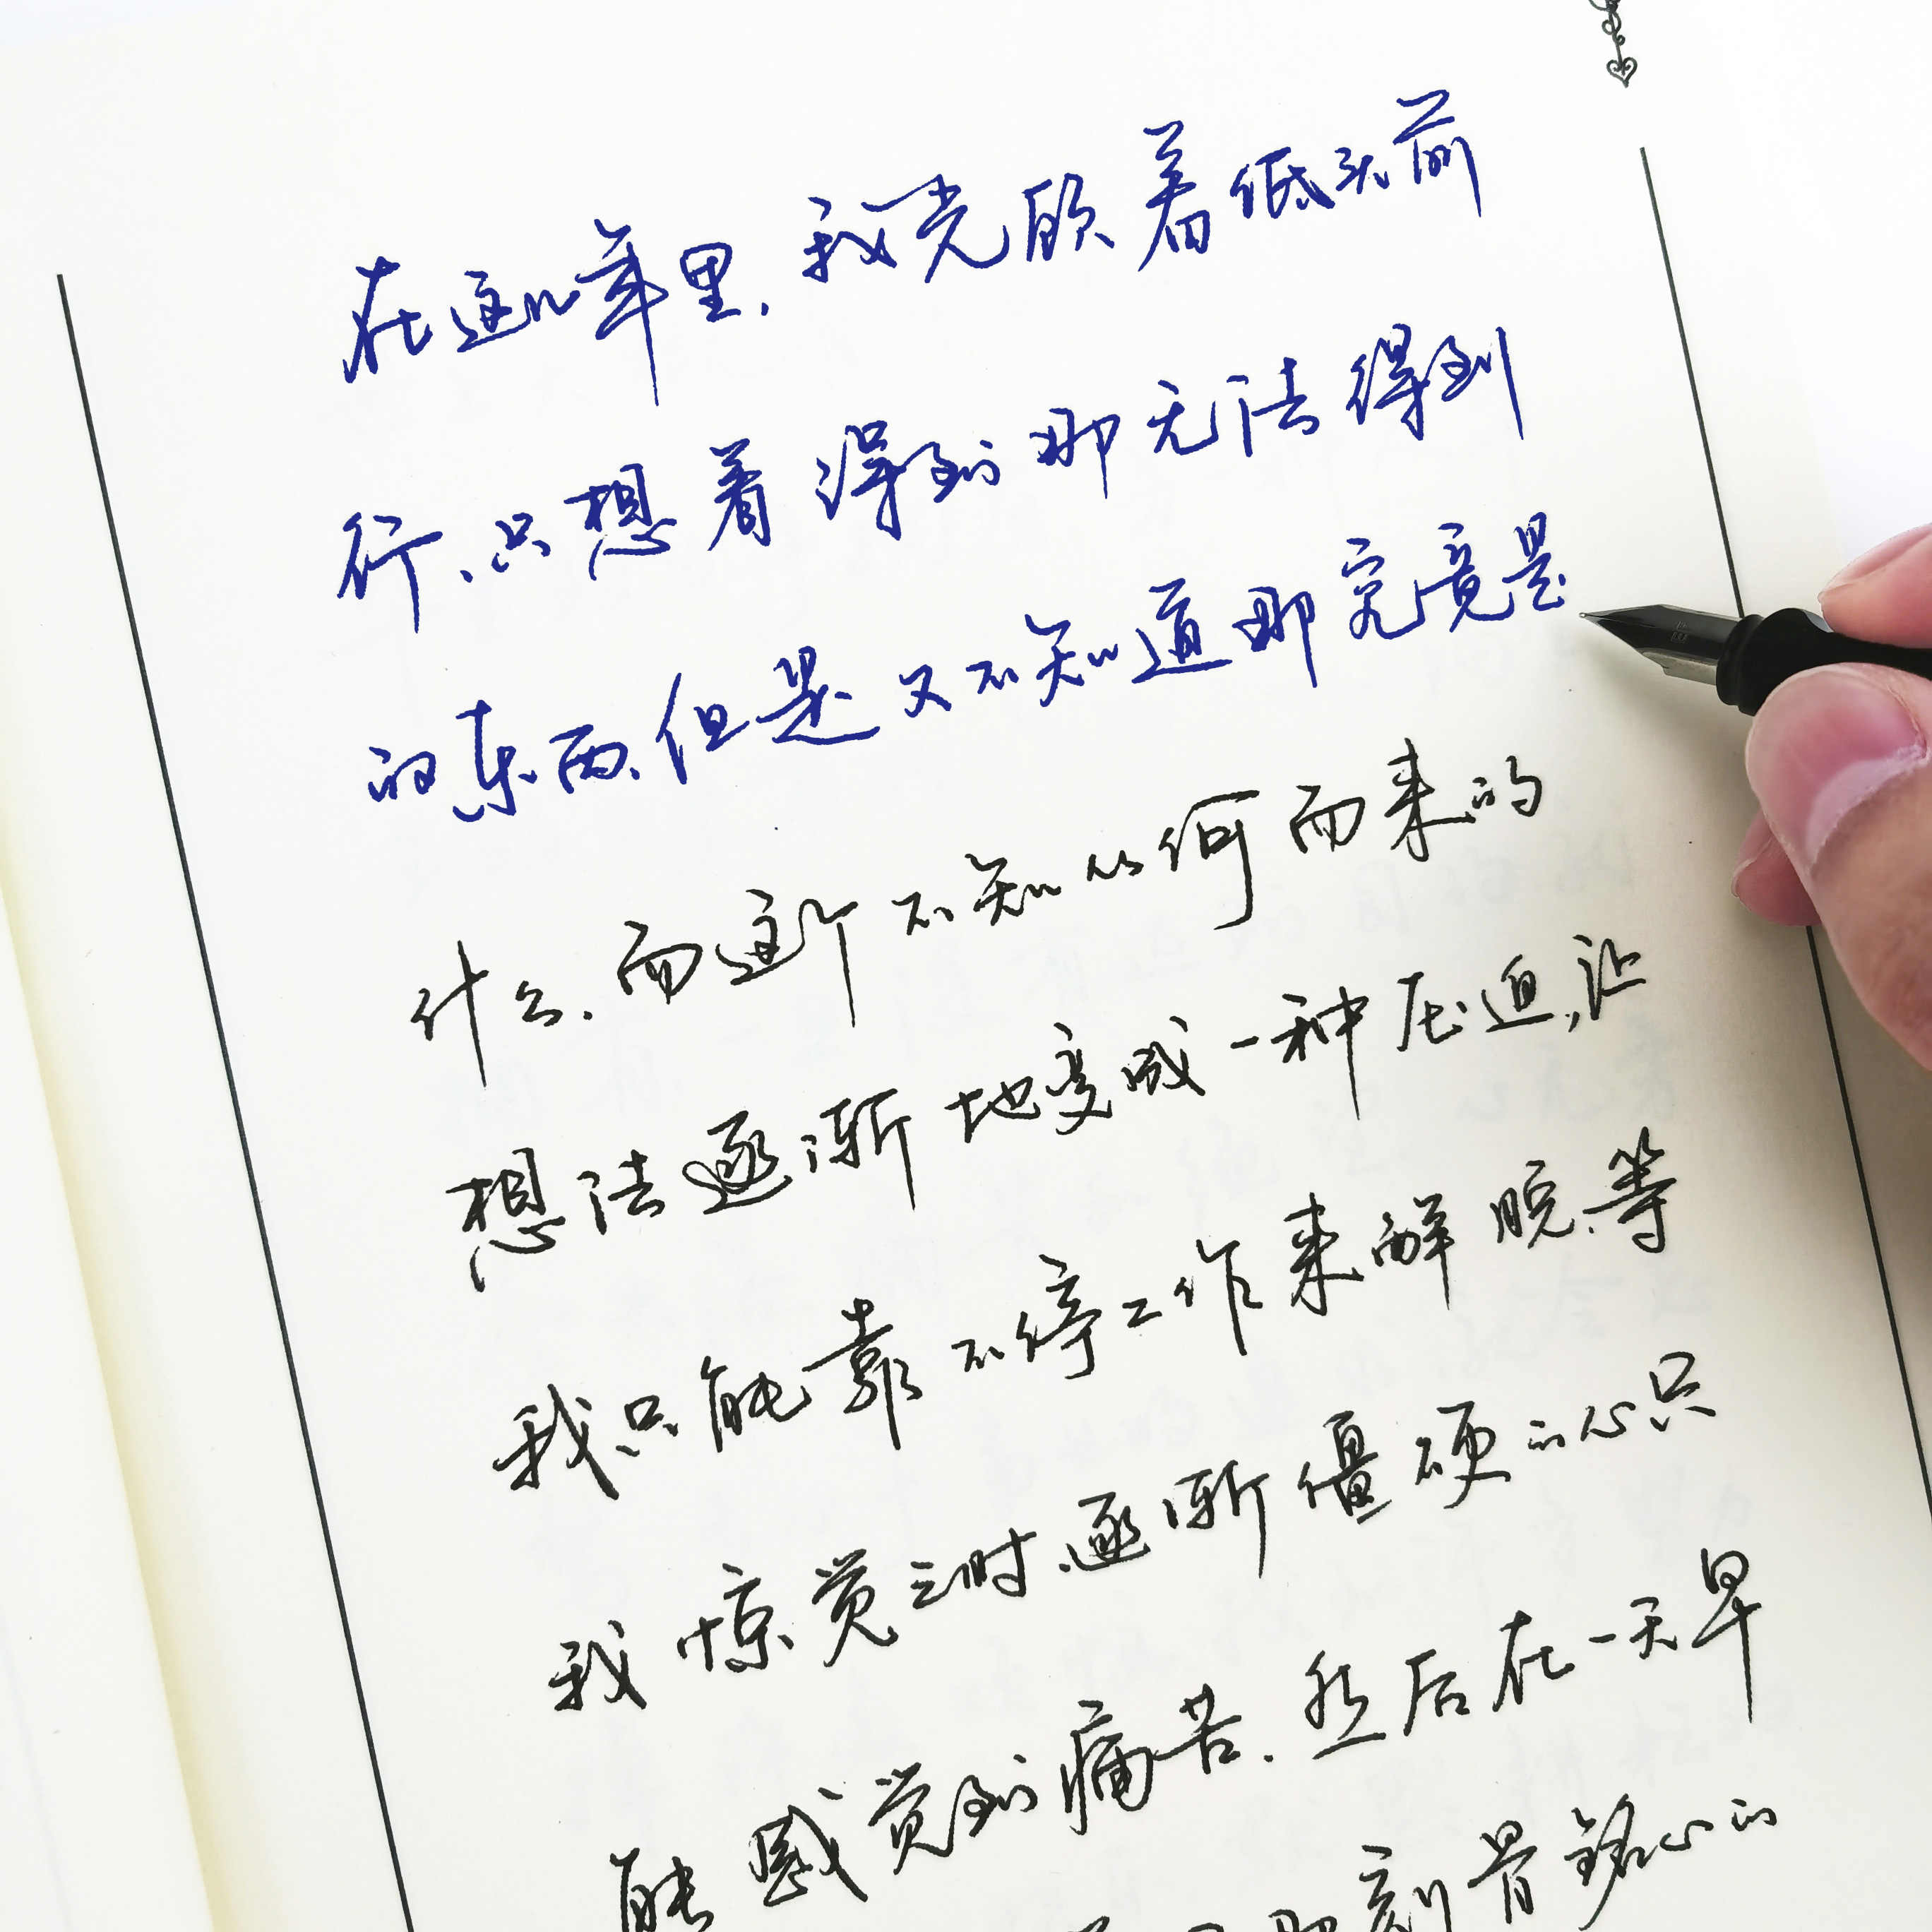 在这几年里，我光顾着低头前
行，只想着得到那无法得到
的东西，但是又不知道那究竟是
什么，而这个不知从何而来的
想法逐渐地变成一种压迫，让
我只能靠不停工作来解脱，等
我惊觉之时，逐渐僵硬的心只
能感觉到痛苦，然后在一天早
刻骨铭心的